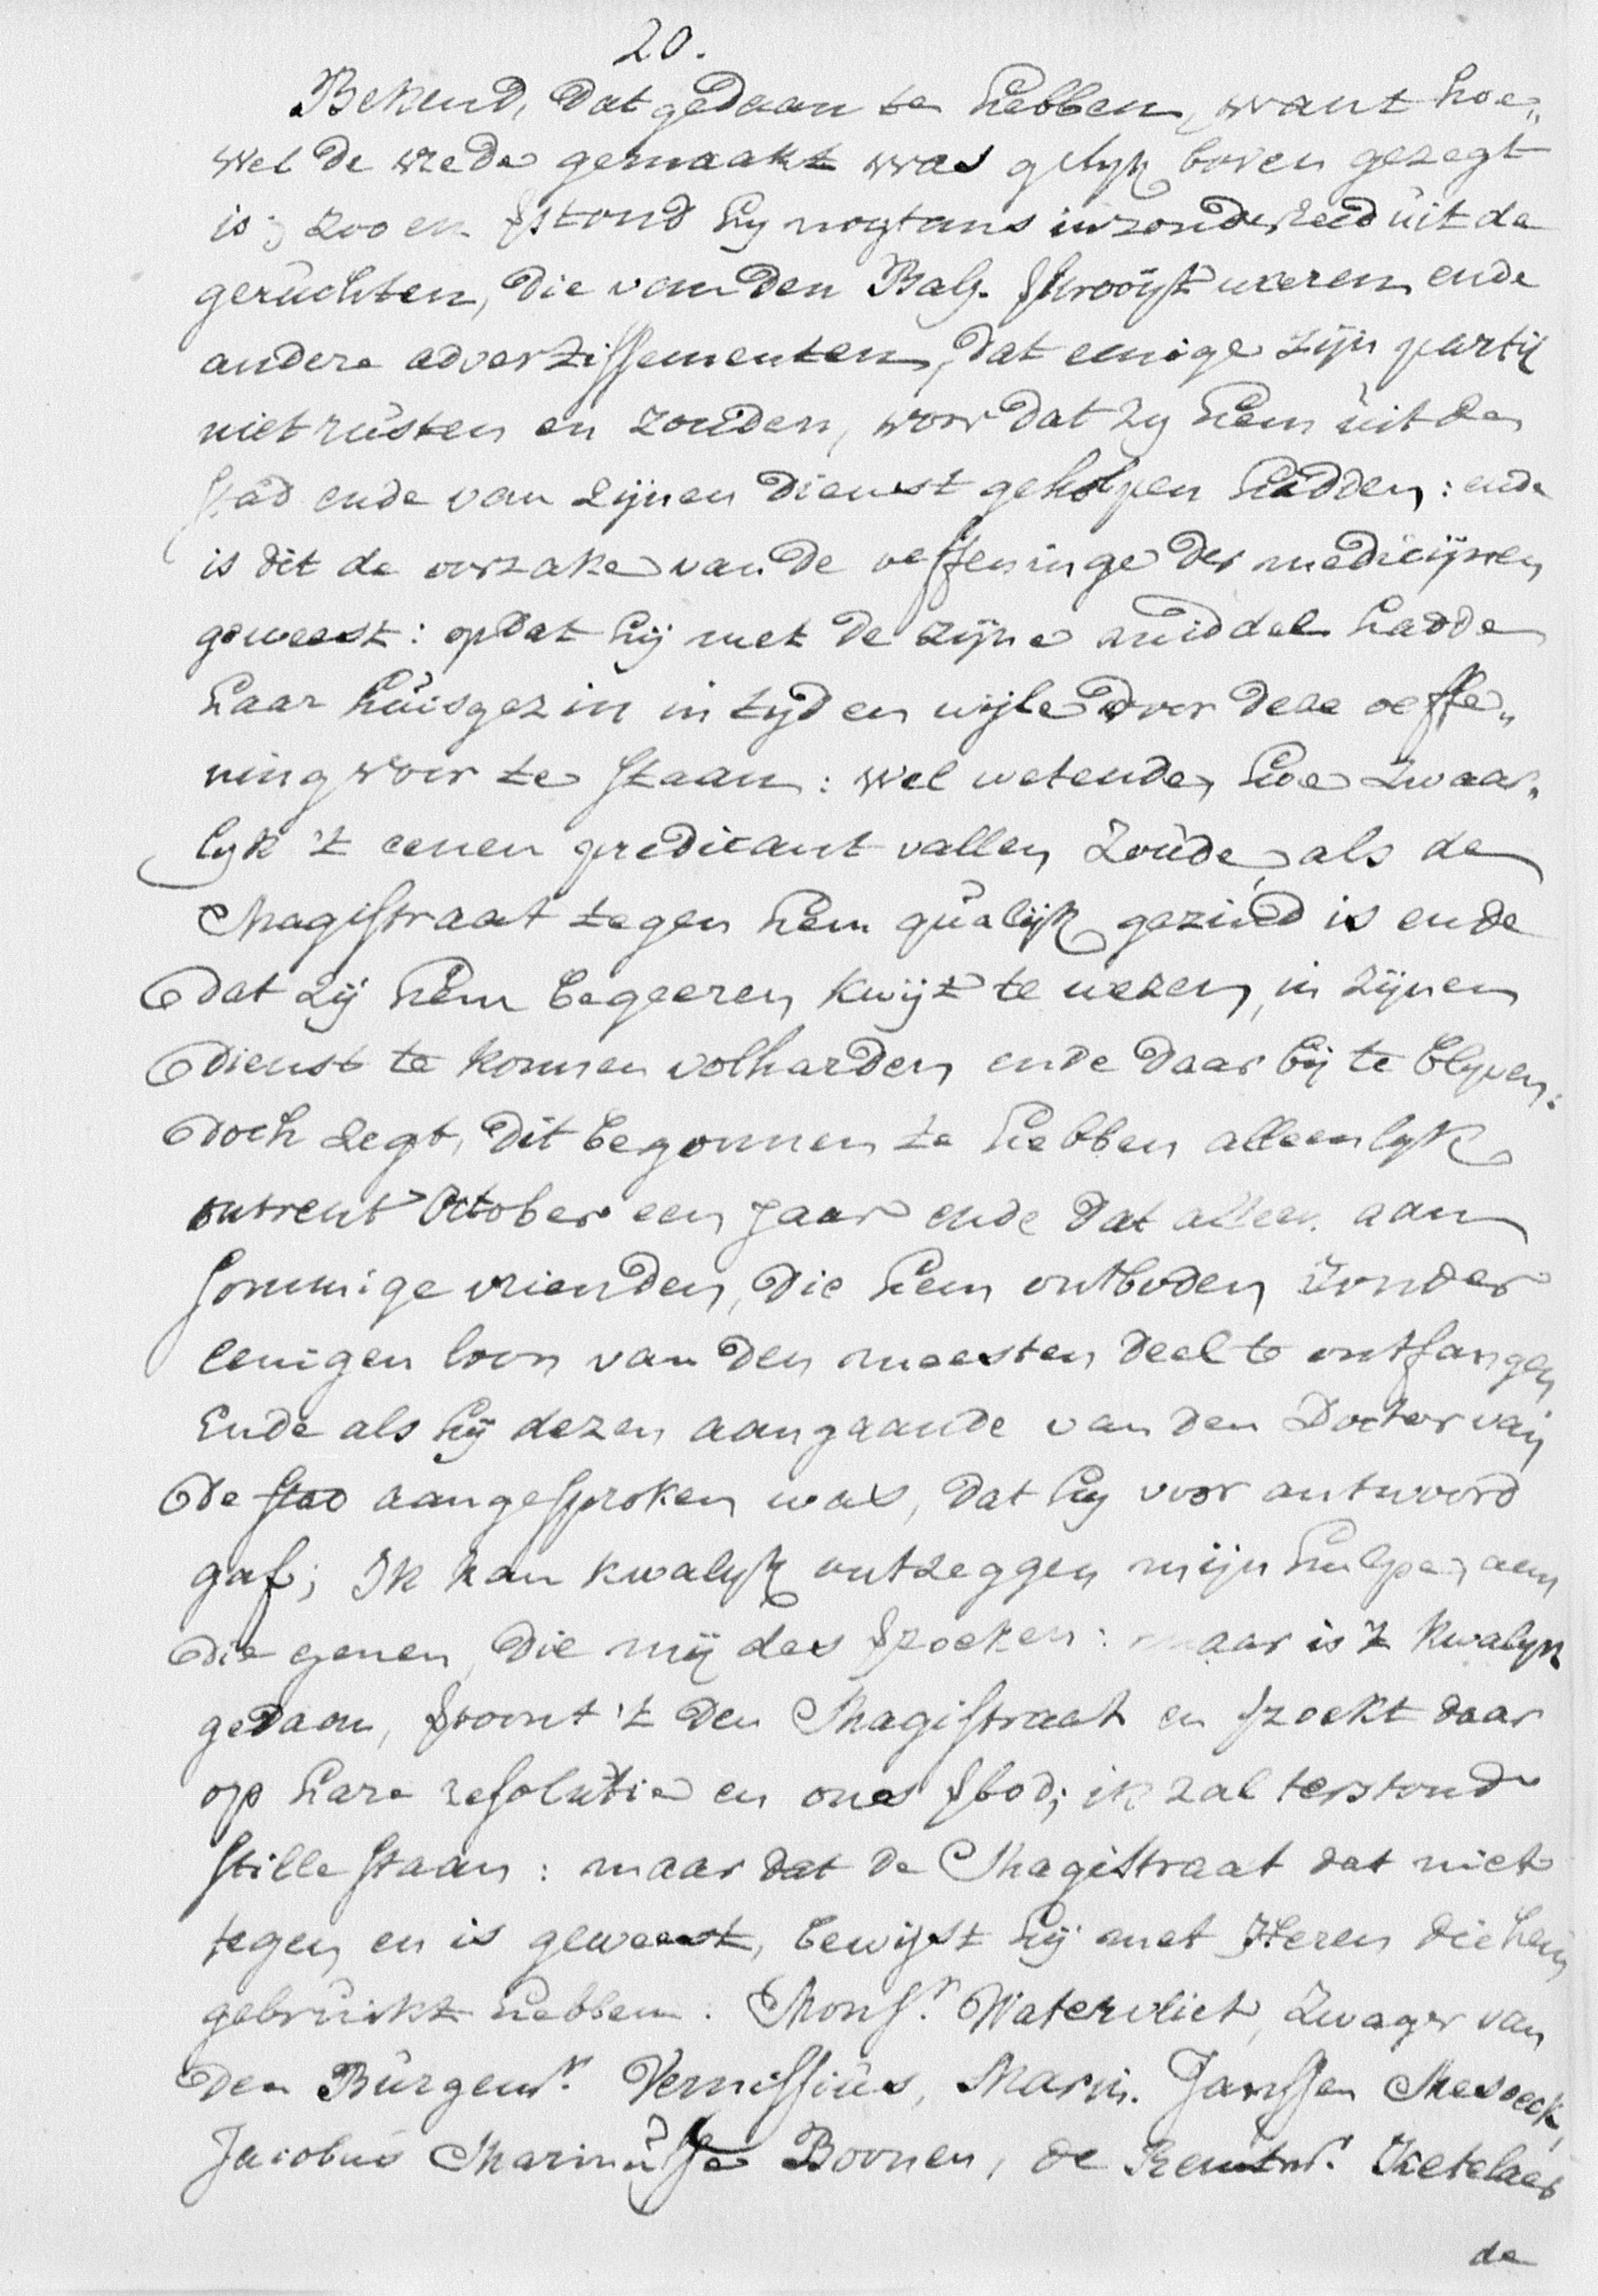 20.
Bekend, dat gedaan te hebben, want hoe„
wel de vrede gemaakt was gelyk boven gezegt
is; zoo en stond hy nogtans inzonderheid uit de
geruchten, die van den Balj. strooijt weren ende
andere advertissementen, dat eenige zijn partij
niet rusten en zouden, voor dat zy hem uit de
stad ende van zijnen dienst geholpen hadden: ende
is dit de oorzake van de oeffeninge der medicijnen
geweest: op dat hij met de zijne middel hadde
haar huisgezin in tyd en wijle door deze oeffe„
ning voor te staan: wel wetende, hoe zwaar„
lyk 't eenen predicant vallen zoude, als de
Magistraat tegen hem qualijk gezind is ende
dat zij hem begeeren kwijt te wezen, in zijnen
dienst te konnen volharden ende daar bij te blyven:
doch zegt, dit begonnen te hebben alleenlyk
ontrent October een jaar ende dat alleen aan
sommige vrienden, die hem ontboden zonder
eenigen loon van den meesten deel te ontfangen
Ende als hij dezen aangaande van den Doctor van
de stad aangesproken was, dat hy voor antwoord
gaf; Ik kan kwalyk ontzeggen mijn hulpe, aan
die genen, die mij des spoeken: maar is 't kwalyk
gedaan, stoont 't den Magistraat en spoekt daar
op hare resolutie en ons sbod; ik zal terstond
stille staan: maar dat de Magistraat dat niet
tegen en is geweest, bewijst hij met Heren die hem
gebruikt hebben. Monsr. Watervliet, Zwager van
den Burgemr. Vernissius, Marin. Janssen Mesdeck,
Jacobus Marinusse Boonen, de Rentmr. Ketelaer
de